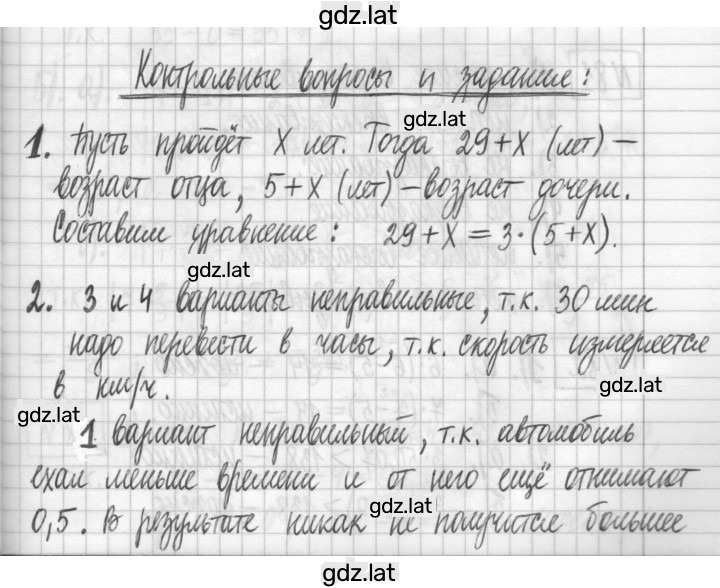 gdz.lat
Контрольные вопросы и задание:
gdz.lat
1. Пусть пройдёт X лет. Тогда 29+X (лет) –
возраст отца, 5+X (лет) – возраст дочери.
Составим уравнение: 29+X=3·(5+X).
gdz.lat
2. 3 и 4 варианты неправильные, т.к. 30 мин
надо перевести в часы, т.к. скорость измеряется
gdz.lat
в км/ч.
gdz.lat
1 вариант неправильный, т.к. автомобиль
ехал меньше времени и от него ещё отнимают
gdz.lat
0,5. В результате никак не получится большее
gdz.lat